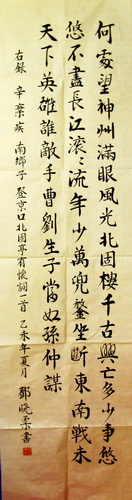 何處望神州滿眼風光北固樓千古興亡多少事悠
悠不盡長江滾〻流年少萬兜鍪坐斷東南戰未
天下英雄誰敵手曹劉生子當如孫仲謀
右錄 辛棄疾 南鄉子 登京口北固亭有懷詞一首 乙未年夏月 鄧曉柔書